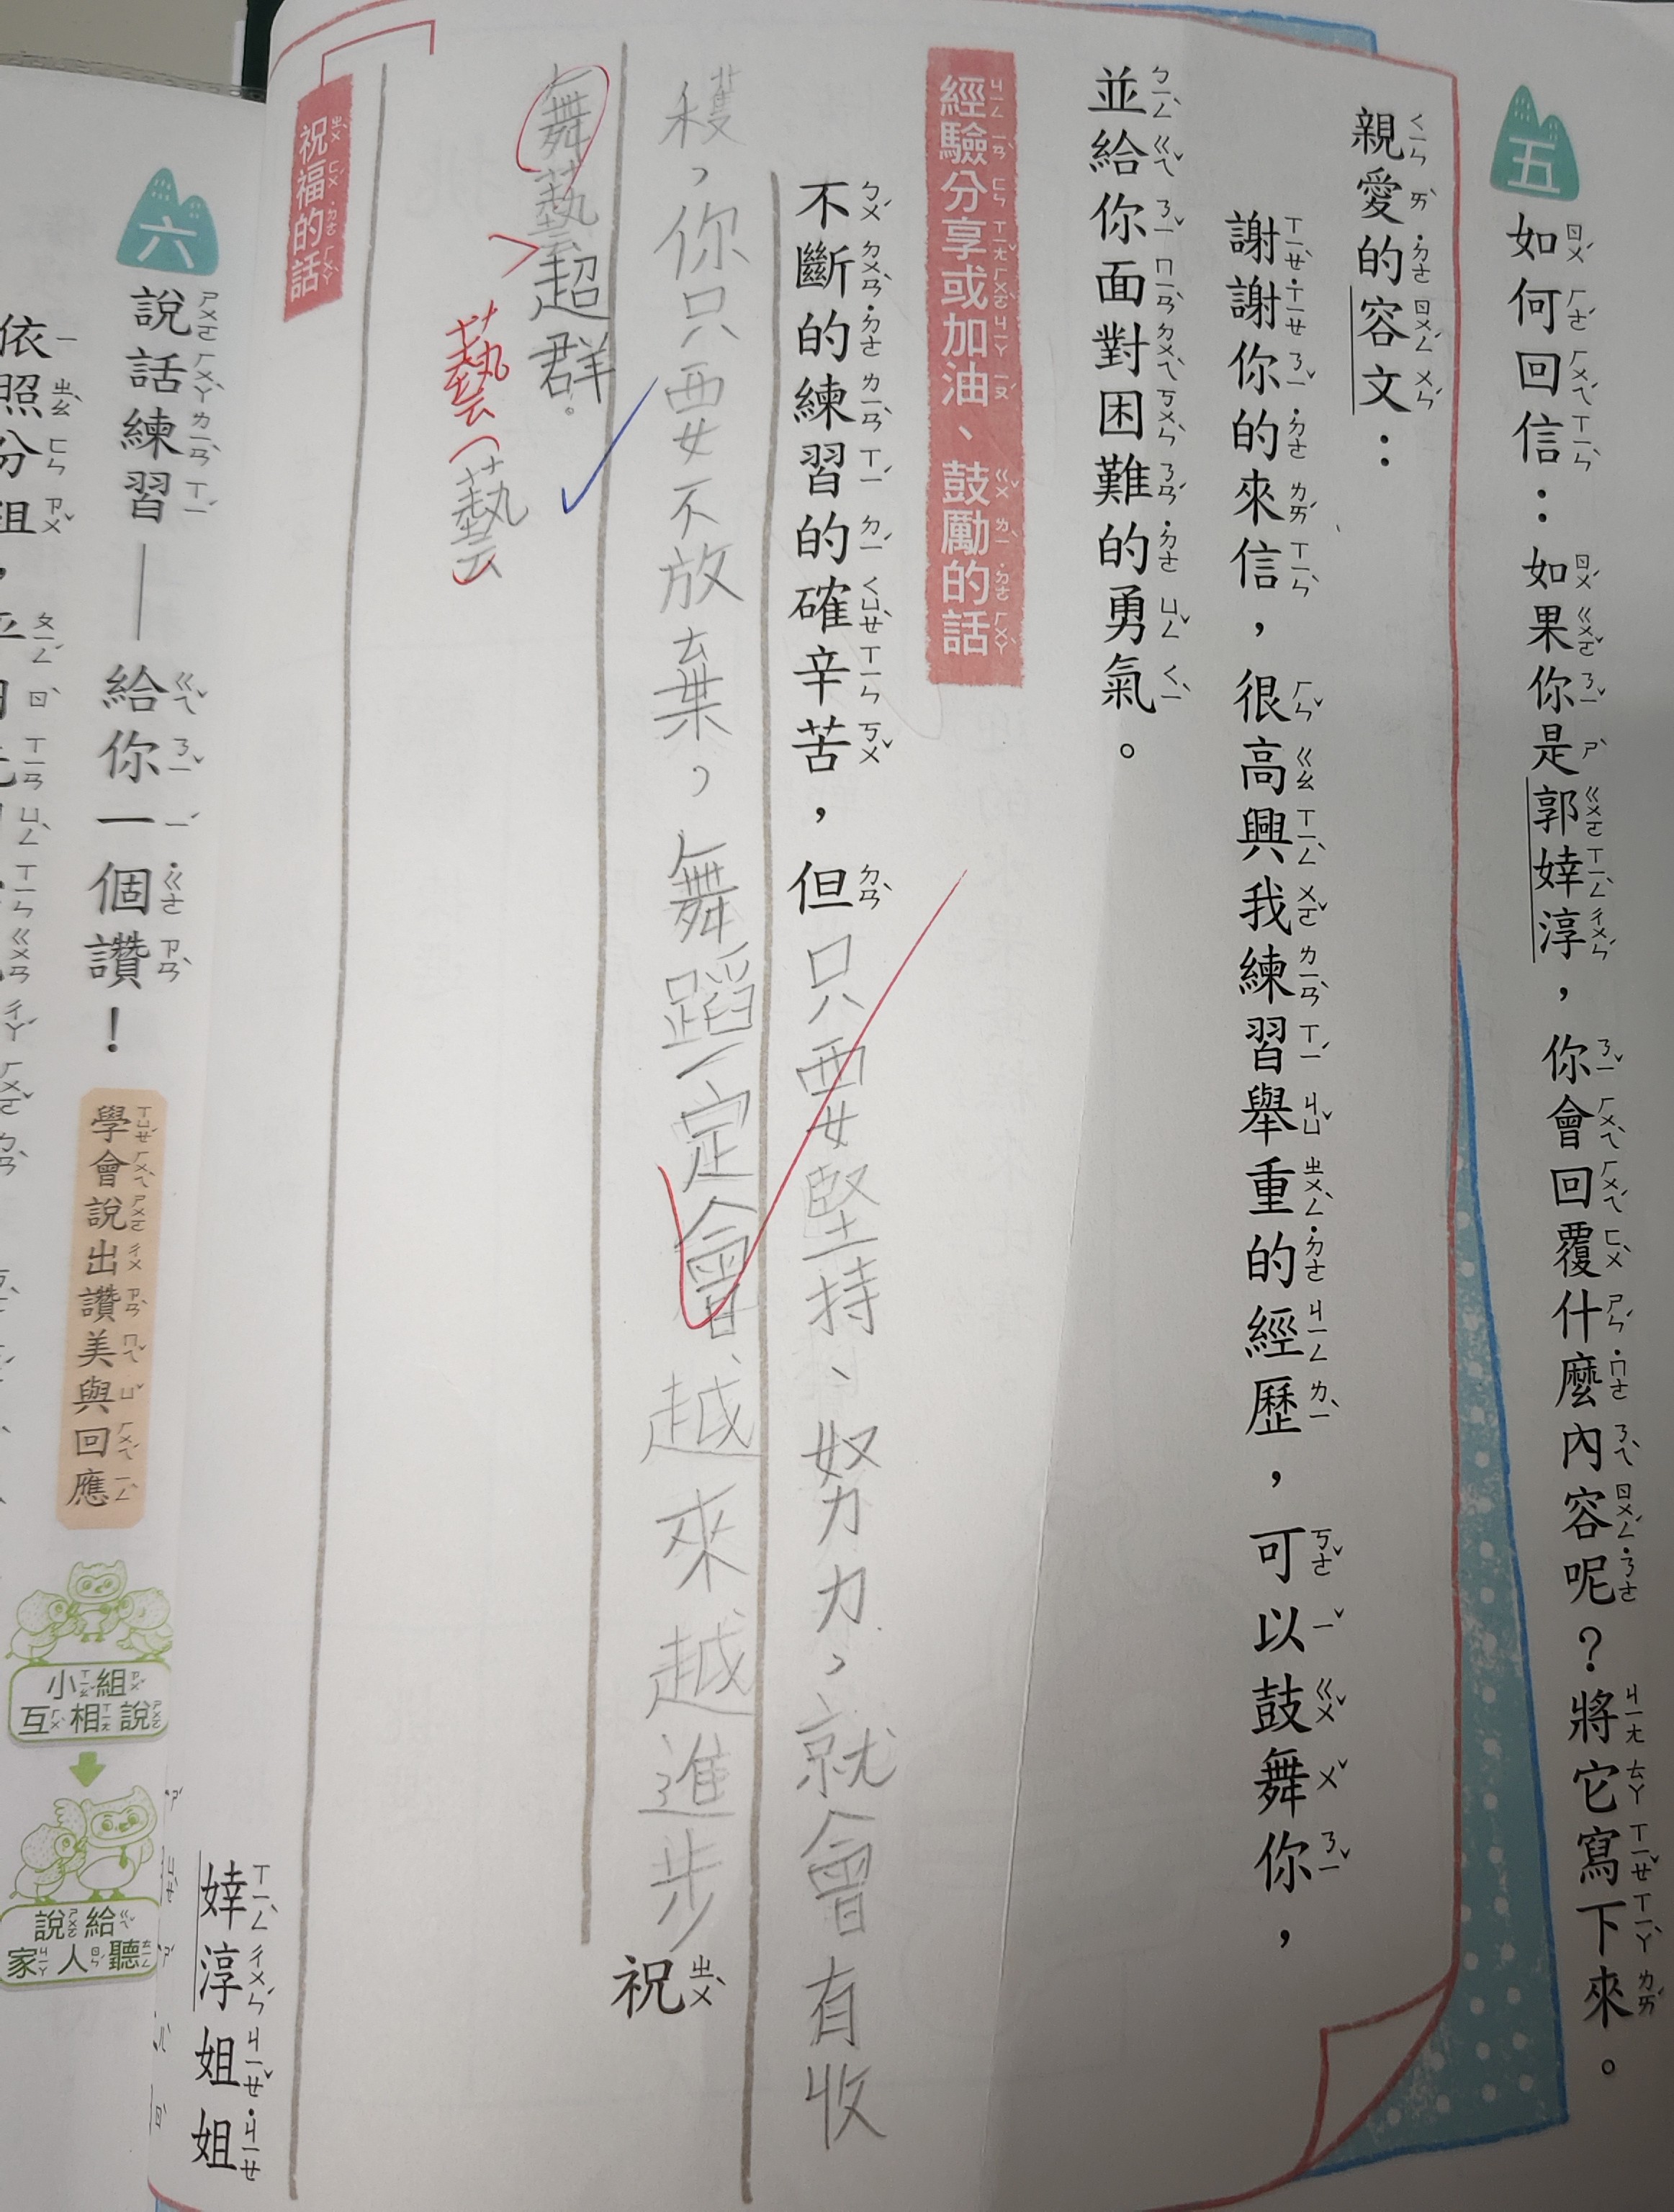 五
如何回信：如果你是郭婞淳，你會回覆什麼內容呢？將它寫下來。
親愛的容文：
謝謝你的來信，很高興我練習舉重的經歷，可以鼓舞你，
並給你面對困難的勇氣。
經驗分享或加油、鼓勵的話
不斷的練習的確辛苦，但只要堅持、努力，就會有收
穫，你只要不放棄，舞蹈一定會越來越進步
祝
舞藝超群。
藝（藝）
祝福的話
婞淳姐姐
六
說話練習——給你一個讚！
學會說出讚美與回應
小組
互相說
說給
家人聽
依照分組，